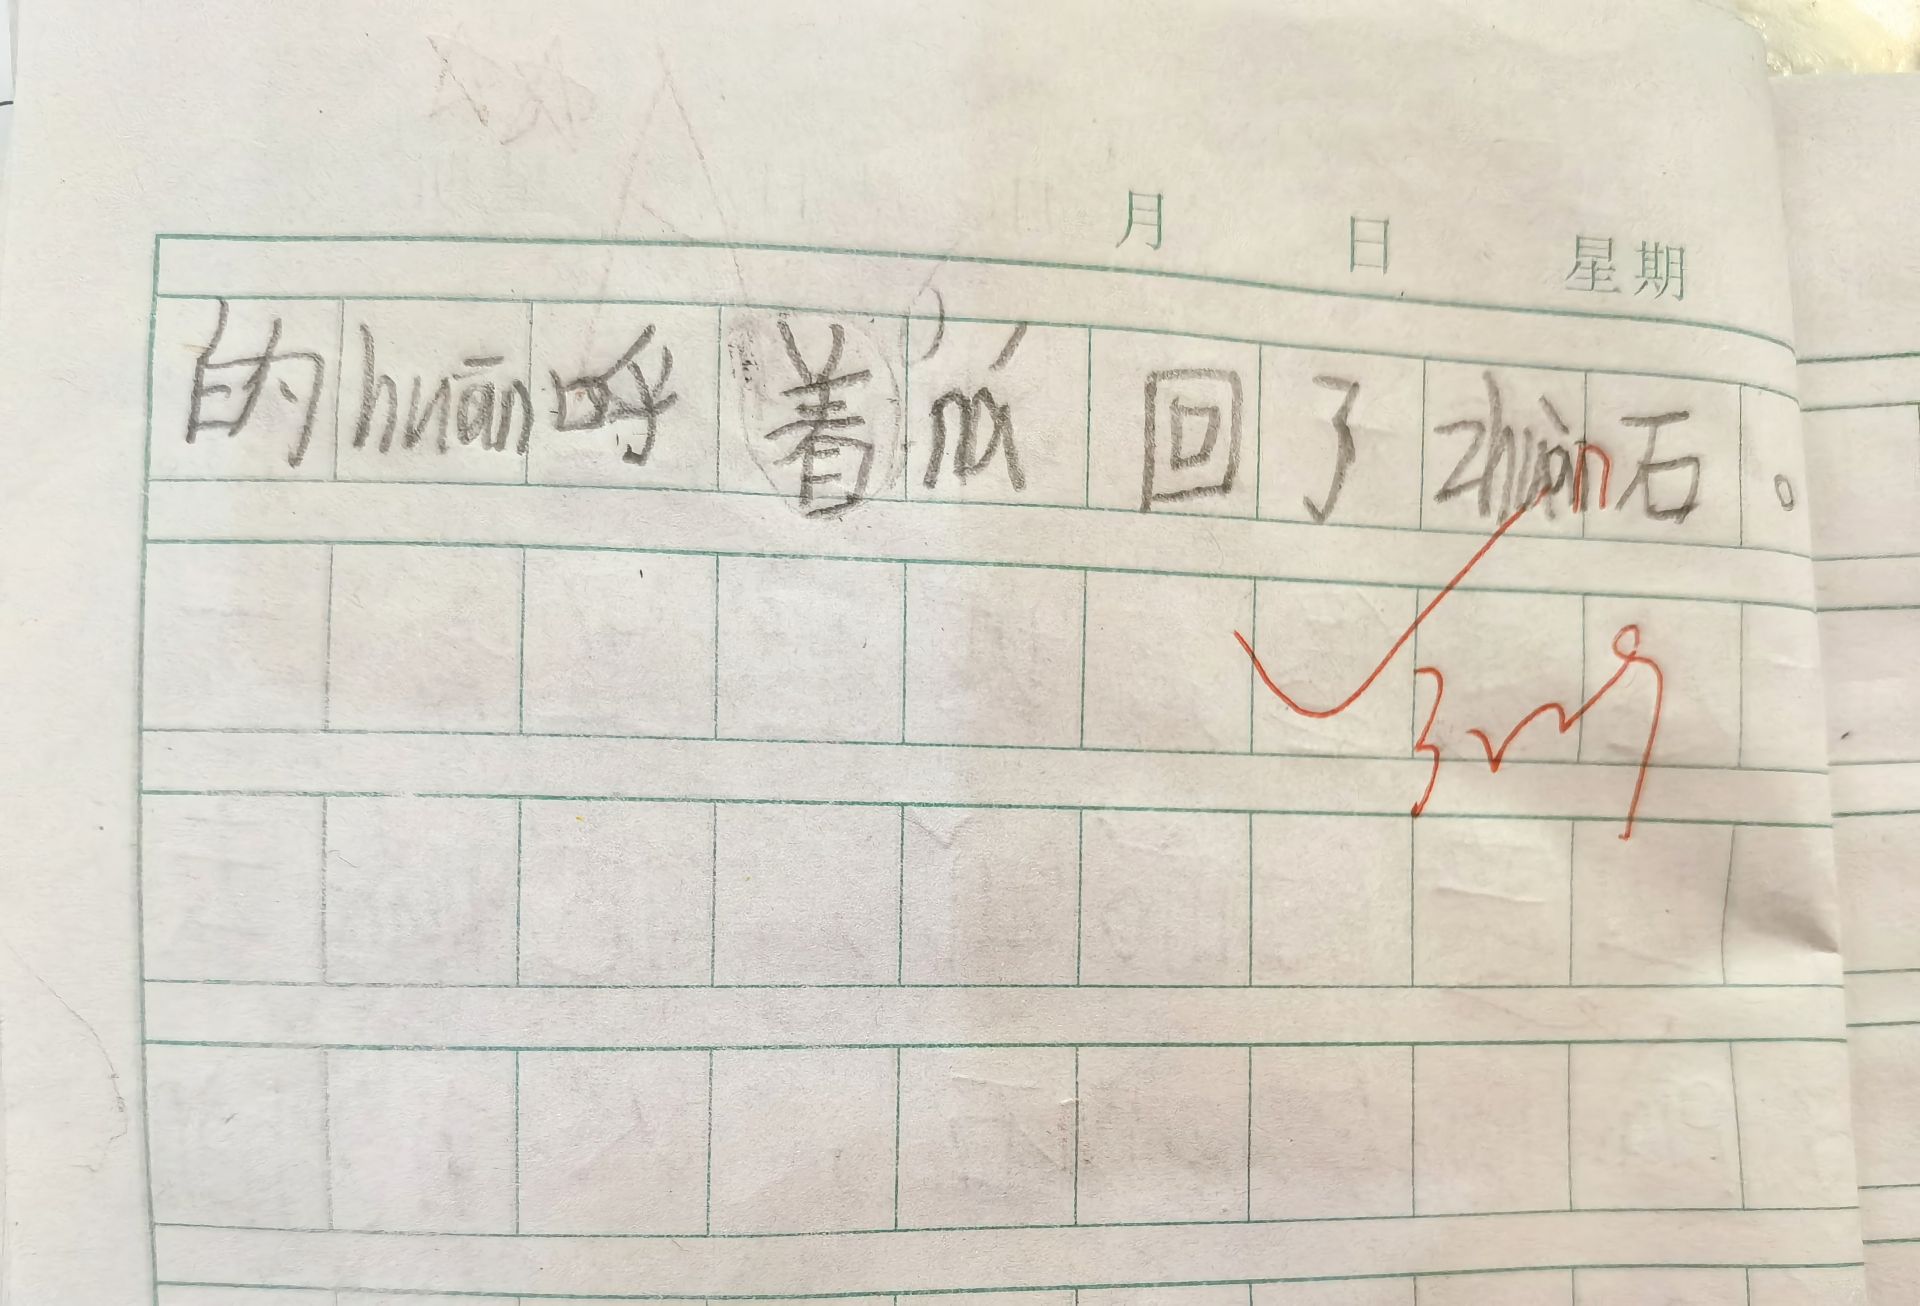 月 日 星期
的huān呼着ná回了zhuàn石。